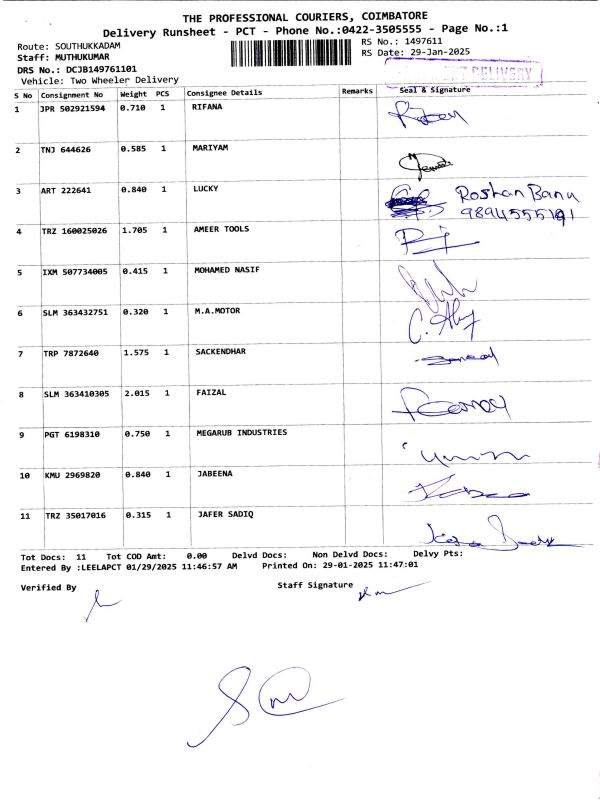 THE PROFESSIONAL COURIERS, COIMBATORE
Delivery Runsheet - PCT - Phone No.:0422-3505555 - Page No.:1
Route: SOUTHUKKADAM RS No.: 1497611
Staff: MUTHUKUMAR RS Date: 29-Jan-2025
DRS No.: DCJB149761101
Vehicle: Two Wheeler Delivery DELIVERY
S No Consignment No Weight PCS Consignee Details Remarks Seal & Signature
1 JPR 502921594 0.710 1 RIFANA
2 TNJ 644626 0.585 1 MARIYAM
3 ART 222641 0.840 1 LUCKY Roshan Banu
9894555191
4 TRZ 160025026 1.705 1 AMEER TOOLS
5 IXM 507734005 0.415 1 MOHAMED NASIF
6 SLM 363432751 0.320 1 M.A.MOTOR
7 TRP 7872640 1.575 1 SACKENDHAR
8 SLM 363410305 2.015 1 FAIZAL
9 PGT 6198310 0.750 1 MEGARUB INDUSTRIES
10 KMU 2969820 0.840 1 JABEENA
11 TRZ 35017016 0.315 1 JAFER SADIQ
Tot Docs: 11 Tot COD Amt: 0.00 Delvd Docs: Non Delvd Docs: Delvy Pts:
Entered By :LEELAPCT 01/29/2025 11:46:57 AM Printed On: 29-01-2025 11:47:01
Verified By Staff Signature